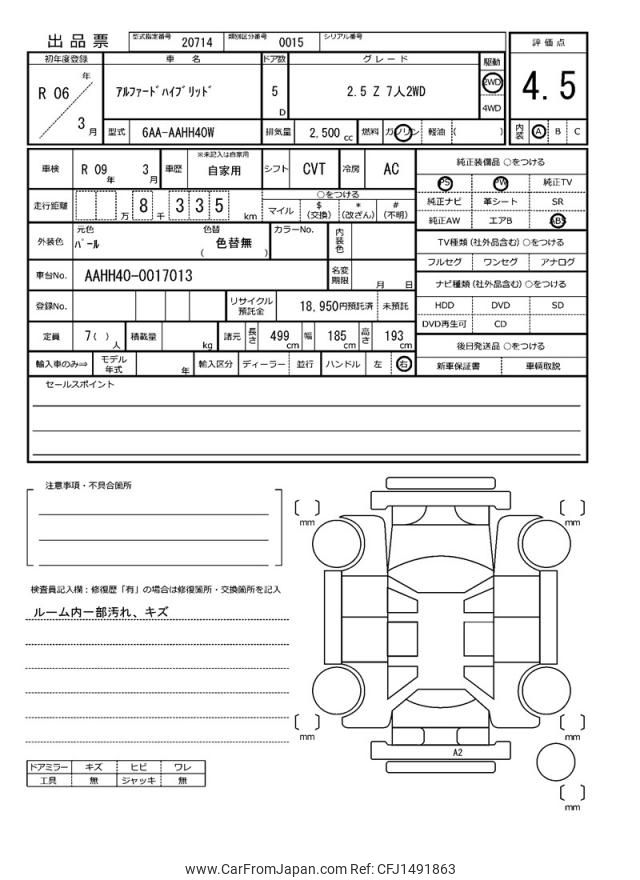 出品票 型式指定番号 20714 類別区分番号 0015 シリアル番号
評価点
4.5
内装 A B C
初年度登録 車名 ドア数 グレード 駆動
R 06 年 3 月 アルファードハイブリッド 5 D 2.5 Z 7人2WD 2WD 4WD
型式 6AA-AAHH40W 排気量 2,500 cc 燃料 ガソリン 軽油 ( )
車検 R 09 年 3 月 車歴 ※未記入は自家用 自家用 シフト CVT 冷房 AC
走行距離 万 8 千 3 3 5 km ○をつける
マイル $ (交換) * (改ざん) # (不明)
外装色 元色 パール 色替 色替無 ( ) カラーNo. 内装色
車台No. AAHH40-0017013 名変期限 月 日
登録No. リサイクル預託金 18,950円預託済 未預託
定員 7( ) 人 積載量 kg 諸元 長さ 499 cm 幅 185 cm 高さ 193 cm
輸入車のみ⇒ モデル年式 年 輸入区分 ディーラー 並行 ハンドル 左 右
純正装備品 ○をつける
PS PW 純正TV
純正ナビ 革シート SR
純正AW エアB ABS
TV種類(社外品含む)○をつける
フルセグ ワンセグ アナログ
ナビ種類(社外品含む)○をつける
HDD DVD SD
DVD再生可 CD
後日発送品 ○をつける
新車保証書 車輌取説
セールスポイント
注意事項・不具合箇所
検査員記入欄:修復歴「有」の場合は修復箇所・交換箇所を記入
ルーム内一部汚れ、キズ
ドアミラー キズ ヒビ ワレ
工具 無 ジャッキ 無
mm
mm
mm
mm
A2
mm
www.CarFromJapan.com Ref: CFJ1491863